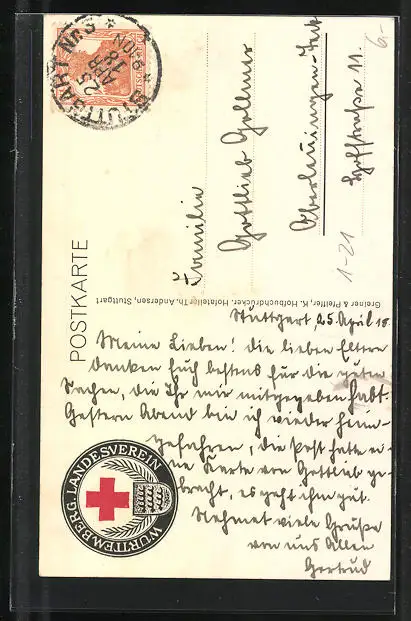 POSTKARTE
STUTTGART Nr. 3
25
APR
18
6-
Familie
Gottlieb
Hofstraße 11.
1-21
Greiner & Pfeiffer, K. Hofbuchdrucker. Hofatelier Th. Andersen, Stuttgart
WÜRTTEMBERG. LANDESVEREIN
Stuttgart, 25. April 18.
Meine Lieben! Die lieben Eltern
danken Euch bestens für die guten
Sachen, die Ihr mir mitgegeben habt.
Gestern Abend bin ich wieder heim-
gefahren, die Post hatte ei-
ne Karte von Gottlieb ge-
bracht, es geht ihm gut.
Nehmet viele Grüße
von uns Allen
Gertrud